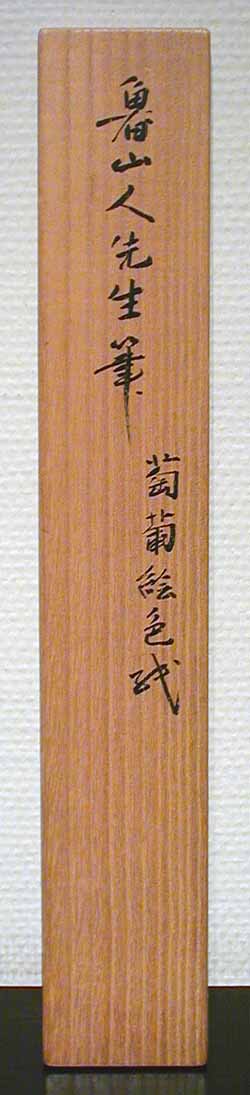 魯山人先生筆
萄葡絵色紙